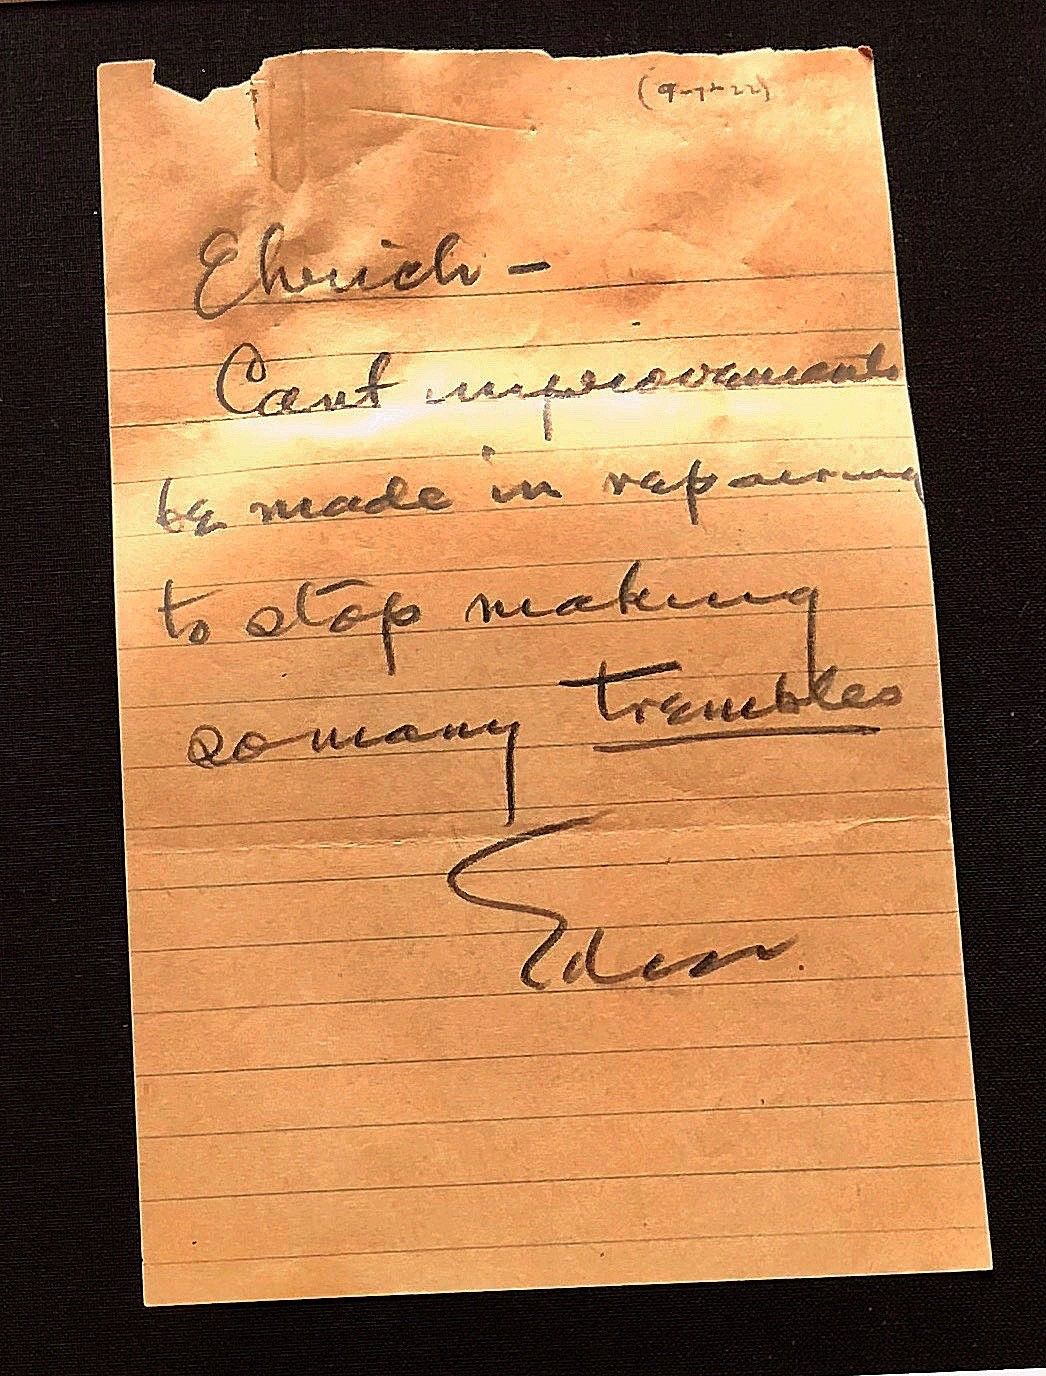 (9-7-22)
Eherich -
Cant improvements
be made in repairing
to stop making
so many trembles
Edison